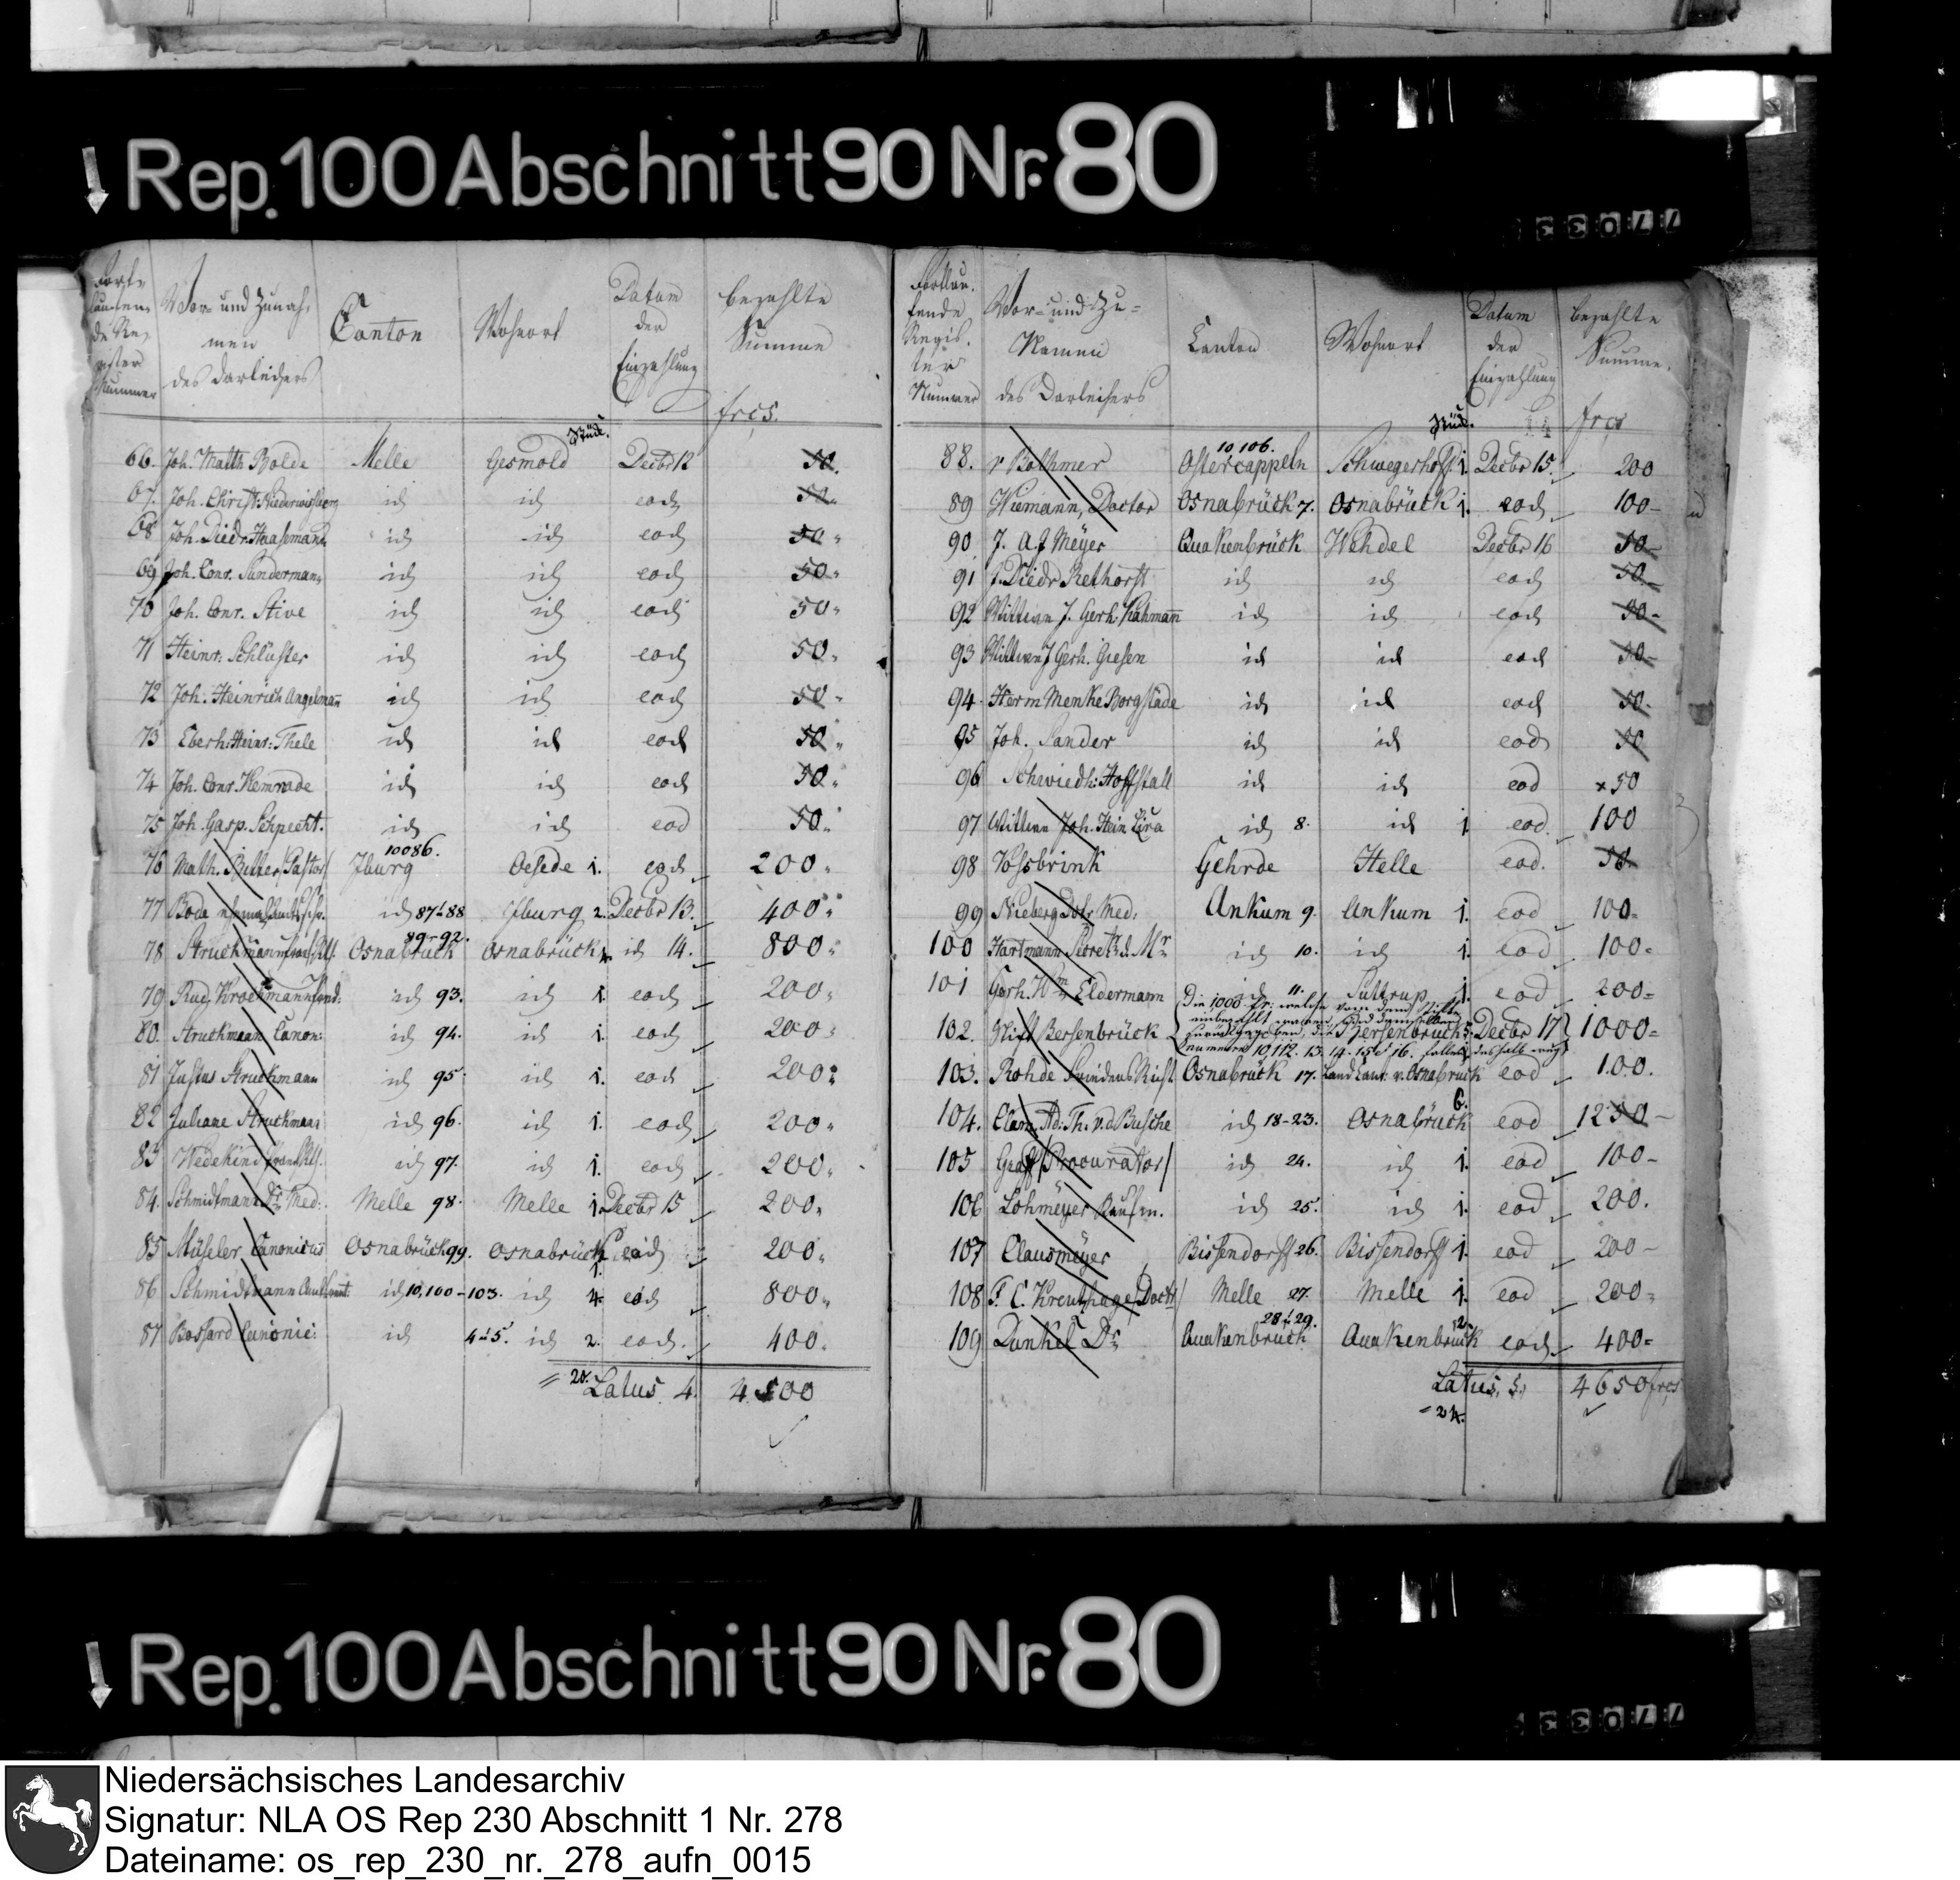 Rep. 100 Abschnitt 90 Nr. 80
77033
Fortlaufende Register Nummer | Vor- und Zunahmen des Darleihers | Canton | Wohnort | Datum der Einzahlung | bezahlte Summe frcs.
Stück.
66. Joh. Math Bolde Melle Gesmold Decbr 12 50.
67. Joh. Christ. id id eod 50.
68 Joh. Diedr. Haasemann id id eod 50.
69 Joh. Conr. Sunderman id id eod 50.
70 Joh. Conr. Stive id id eod 50.
71 Heinr. Schlüster id id eod 50.
72 Joh. Heinrich Angelman id id eod 50.
73 Eberh. Heinr: Thele id id eod 50.
74 Joh. Conr. Hemrade id id eod 50.
75 Joh. Casp. Schpecht. id id eod 50.
76 Math. Pastor/ Jburg 10086. Oesede 1. eod 200.
77 Bode id 87 & 88 Jburg 2. Decbr 13. 400.
78 Struckmann Osnabrück 89-92. Osnabrück 4. id 14. 800.
79 Rud. Krochmann id 93. id 1. eod 200.
80. Struckmann Canon: id 94. id 1. eod 200.
81 Justus Struckmann id 95. id 1. eod 200.
82 Juliane Struckmann id 96. id 1. eod 200.
83 Wedekind id 97. id 1. eod 200.
84. Schmidtmann Dr. Med: Melle 98. Melle 1. Decbr 15 200.
85 Müseler Canonicus Osnabrück 99. Osnabrück 1. eod 200.
86 Schmidtmann id 10,100-103. id 4. eod 800.
87 Bossard Canonic: id 4 & 5. id 2. eod. 400.
= 20. Latus 4. 4500
Fortlaufende Register Nummer | Vor- und Zu=Namen des Darleihers | Canton | Wohnort | Datum der Einzahlung | bezahlte Summe. frcs
Stück.
88. v Bothmer Ostercappeln 10 106. Schwegerhoff 1. Decbr 15. 200
89 Wiemann, Doctor Osnabrück 7. Osnabrück 1. eod 100-
90 J. A. F Meyer Quakenbrück Wehdel Decbr 16 50-
91 J. Diedr Rethorst id id eod 50.-
92 Wittwe J. Gerh. Kahmann id id eod 50-
93 Wittwe J Gerh. Giesen id id eod 50-
94. Herm Menke Borgstäde id id eod 50.
95 Joh. Sander id id eod 50
96 Schwiedh: Hoffstall id id eod x 50
97 Wittwe Joh. Hein id 8. id 1 eod. 100
98 Vossbrink Gehrde Helle eod. 50.
99 Nieberg Dotr Med: Ankum 9. Ankum 1. eod 100.
100 Hartmann Secret. id 10. id 1. eod 100.
101 Gerh. Wm Eldermann id 11. Suttrup 1. eod 200=
Die 1000 fr: welche vom dem Stifte
einbezahlt waren, sind demselben
zurückgegeben, die
nummern 10,112. 13. 14. 15 & 16. fallen deshalb weg
102. Stift Bersenbrück Bersenbrück 5. Decbr 17 1000=
103. Rohde Friedens Richt Osnabrück 17. Land Cant: v. Osnabrück eod 100.
104. Clam. Ad: Th. v. d Busche id 18-23. Osnabrück 6. eod 1250-
105 Graff /Procurator/ id 24. id 1. eod 100-
106 Löhmeyer Kaufm. id 25. id 1. eod 200.
107 Clausmeyer Bissendorff 26. Bissendorff 1. eod 200-
108 F. C. Kreuthage /Doctr/ Melle 27. Melle 1. eod 200=
109 Dunkel Dr. Quakenbrück 28 & 29. Quakenbrück 2. eod 400=
Latus. 5. 4650 frcs
= 24.
Rep. 100 Abschnitt 90 Nr. 80
77033
Niedersächsisches Landesarchiv
Signatur: NLA OS Rep 230 Abschnitt 1 Nr. 278
Dateiname: os_rep_230_nr._278_aufn_0015